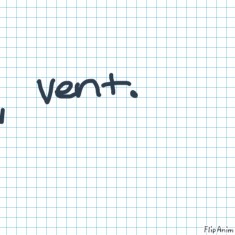 vent.
FlipAnim